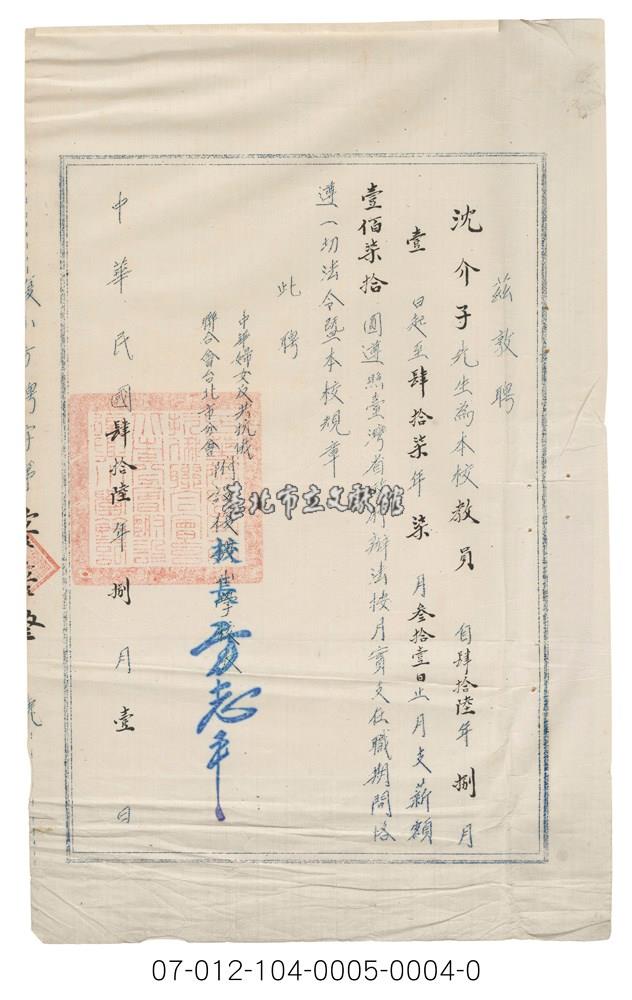 茲敦聘
沈介子先生為本校教員自肆拾陸年捌月
壹日起至肆拾柒年柒月叁拾壹日止月支薪額
壹佰柒拾圓遵照臺灣省 辦法按月實支在職期間恪
遵一切法令暨本校規章
此聘
中華婦女反共抗俄
聯合會台北市分會附設
校長
志平
中華民國肆拾陸年捌月壹日
聘字第
號
臺北市立文獻館
07-012-104-0005-0004-0